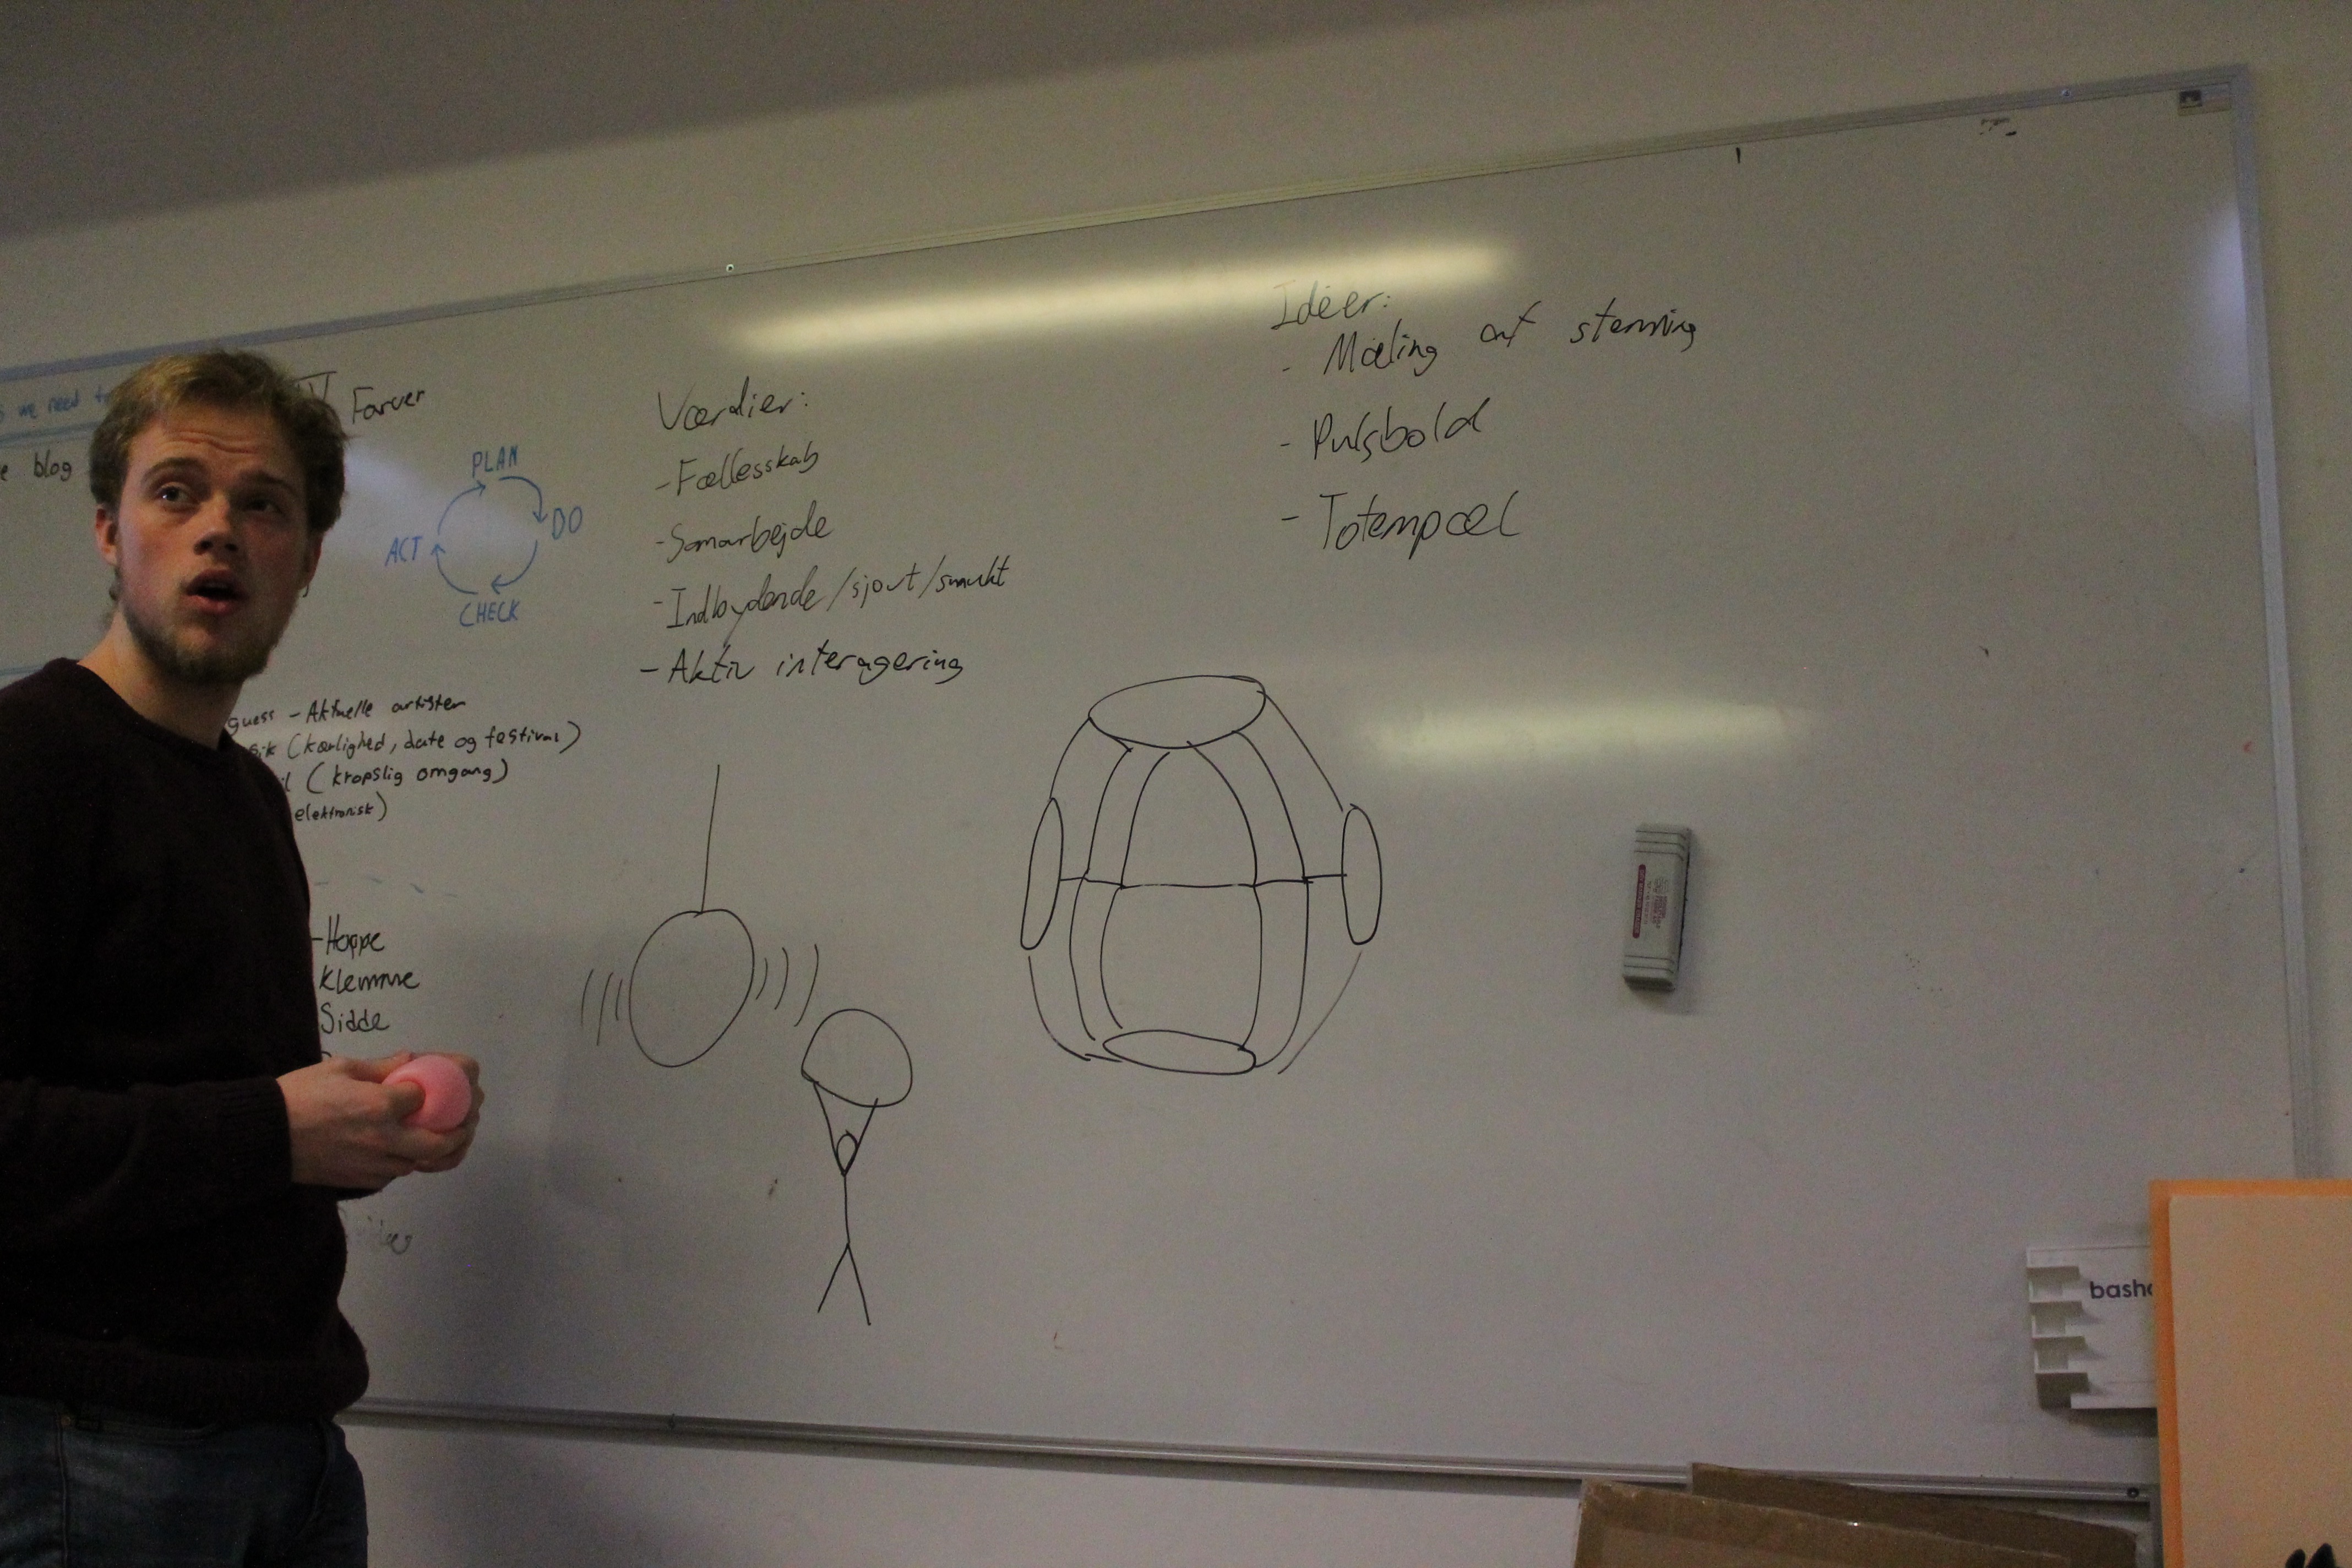 we need
blog
Farver
PLAN
DO
CHECK
ACT
guess - Aktuelle artister
(kærlighed, date og festival)
(kropslig omgang)
elektronisk)
- Hoppe
Klemme
Sidde
Værdier:
- Fællesskab
- Samarbejde
- Indbydende/sjovt/smukt
- Aktiv interagering
Idéer:
- Måling af stemning
- Pulsbold
- Totempæl
bash